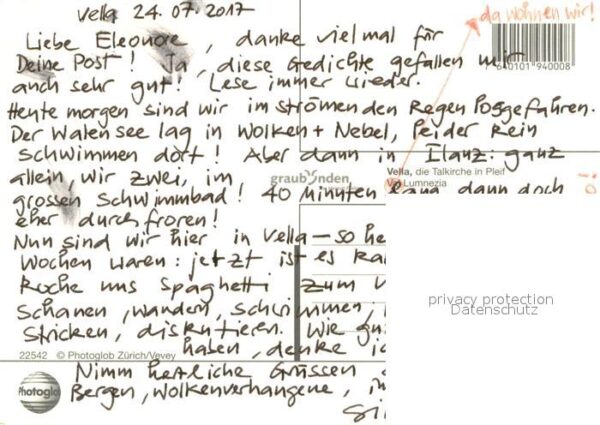 Vella 24.07.2017
da wohnen wir!
Liebe Eleonore, danke vielmal für
Deine Post! Ja, diese Gedichte gefallen mir
auch sehr gut! Lese immer wieder.
7640101 940008
Heute morgen sind wir im strömenden Regen losgefahren.
Der Walensee lag in Wolken + Nebel, leider kein
Schwimmen dort! Aber dann in Ilanz: ganz
allein, wir zwei, im
graubünden
Vella, die Talkirche in Pleif
Val Lumnezia
grossen Schwimmbad! 40 Minuten lang dann doch
eher durchfroren!
Nun sind wir hier in Vella – so he
Wochen waren: jetzt ist es ka
Koche uns Spaghetti zum
Schauen, wandern, schwimmen,
stricken, diskutieren. Wie
haben, denke ic
22542 © Photoglob Zürich/Vevey
Nimm herzliche Grüssen
Photoglob
Bergen, wolkenverhangene, in
privacy protection
Datenschutz